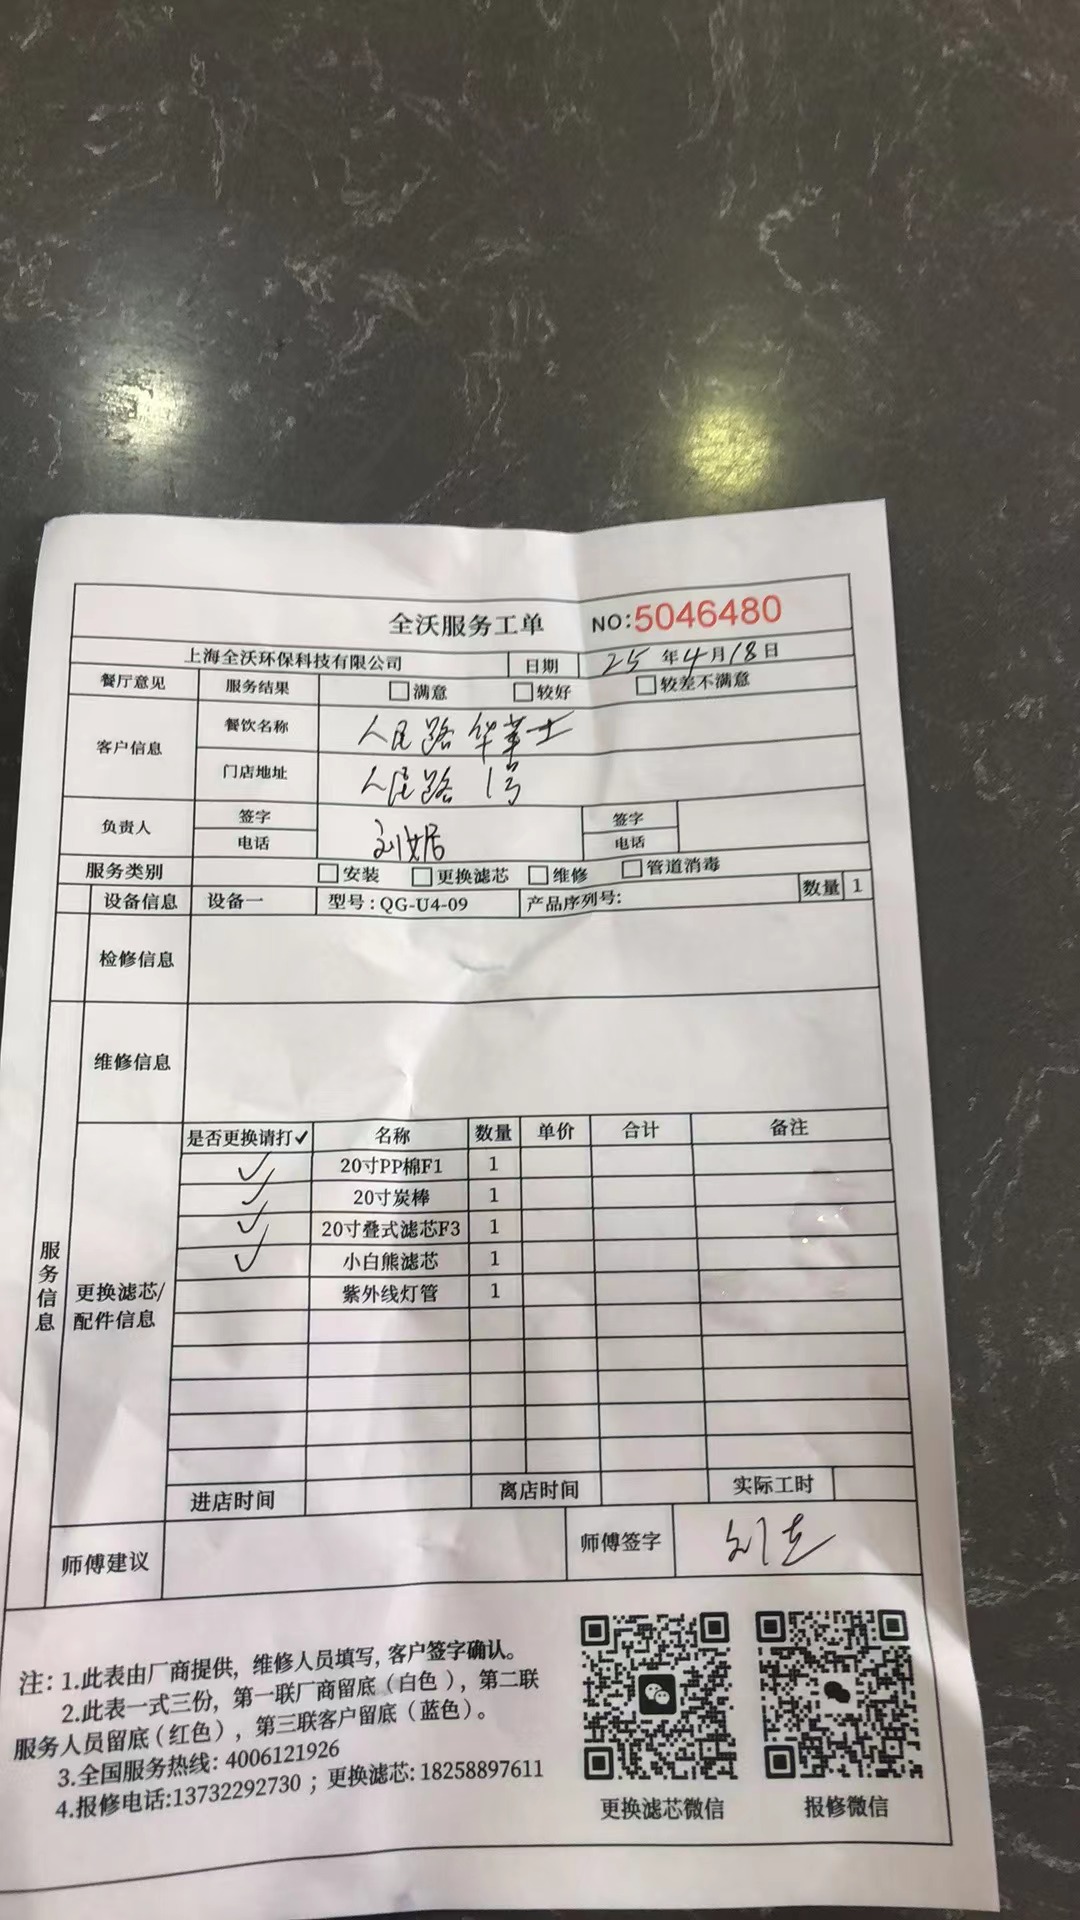 全沃服务工单 NO:5046480
上海全沃环保科技有限公司 日期 25年4月18日
餐厅意见 服务结果 满意 较好 较差不满意
客户信息 餐饮名称 人民路华莱士
门店地址 人民路1号
负责人 签字 签字
电话 电话
服务类别 安装 更换滤芯 维修 管道消毒
设备信息 设备一 型号:QG-U4-09 产品序列号: 数量 1
检修信息
维修信息
服务信息
更换滤芯/配件信息
是否更换请打✓ 名称 数量 单价 合计 备注
✓ 20寸PP棉F1 1
✓ 20寸炭棒 1
✓ 20寸叠式滤芯F3 1
✓ 小白熊滤芯 1
紫外线灯管 1
进店时间 离店时间 实际工时
师傅建议 师傅签字
注:1.此表由厂商提供,维修人员填写,客户签字确认。
2.此表一式三份,第一联厂商留底(白色),第二联
服务人员留底(红色),第三联客户留底(蓝色)。
3.全国服务热线:4006121926
4.报修电话:13732292730;更换滤芯:18258897611
更换滤芯微信 报修微信